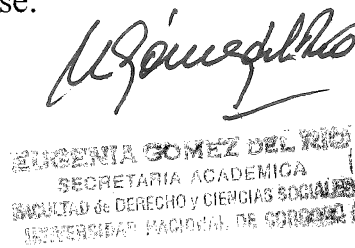 se.
M Gómez del Río
EUGENIA GOMEZ DEL RIO
SECRETARIA ACADEMICA
FACULTAD de DERECHO y CIENCIAS SOCIALES
UNIVERSIDAD NACIONAL DE CORDOBA